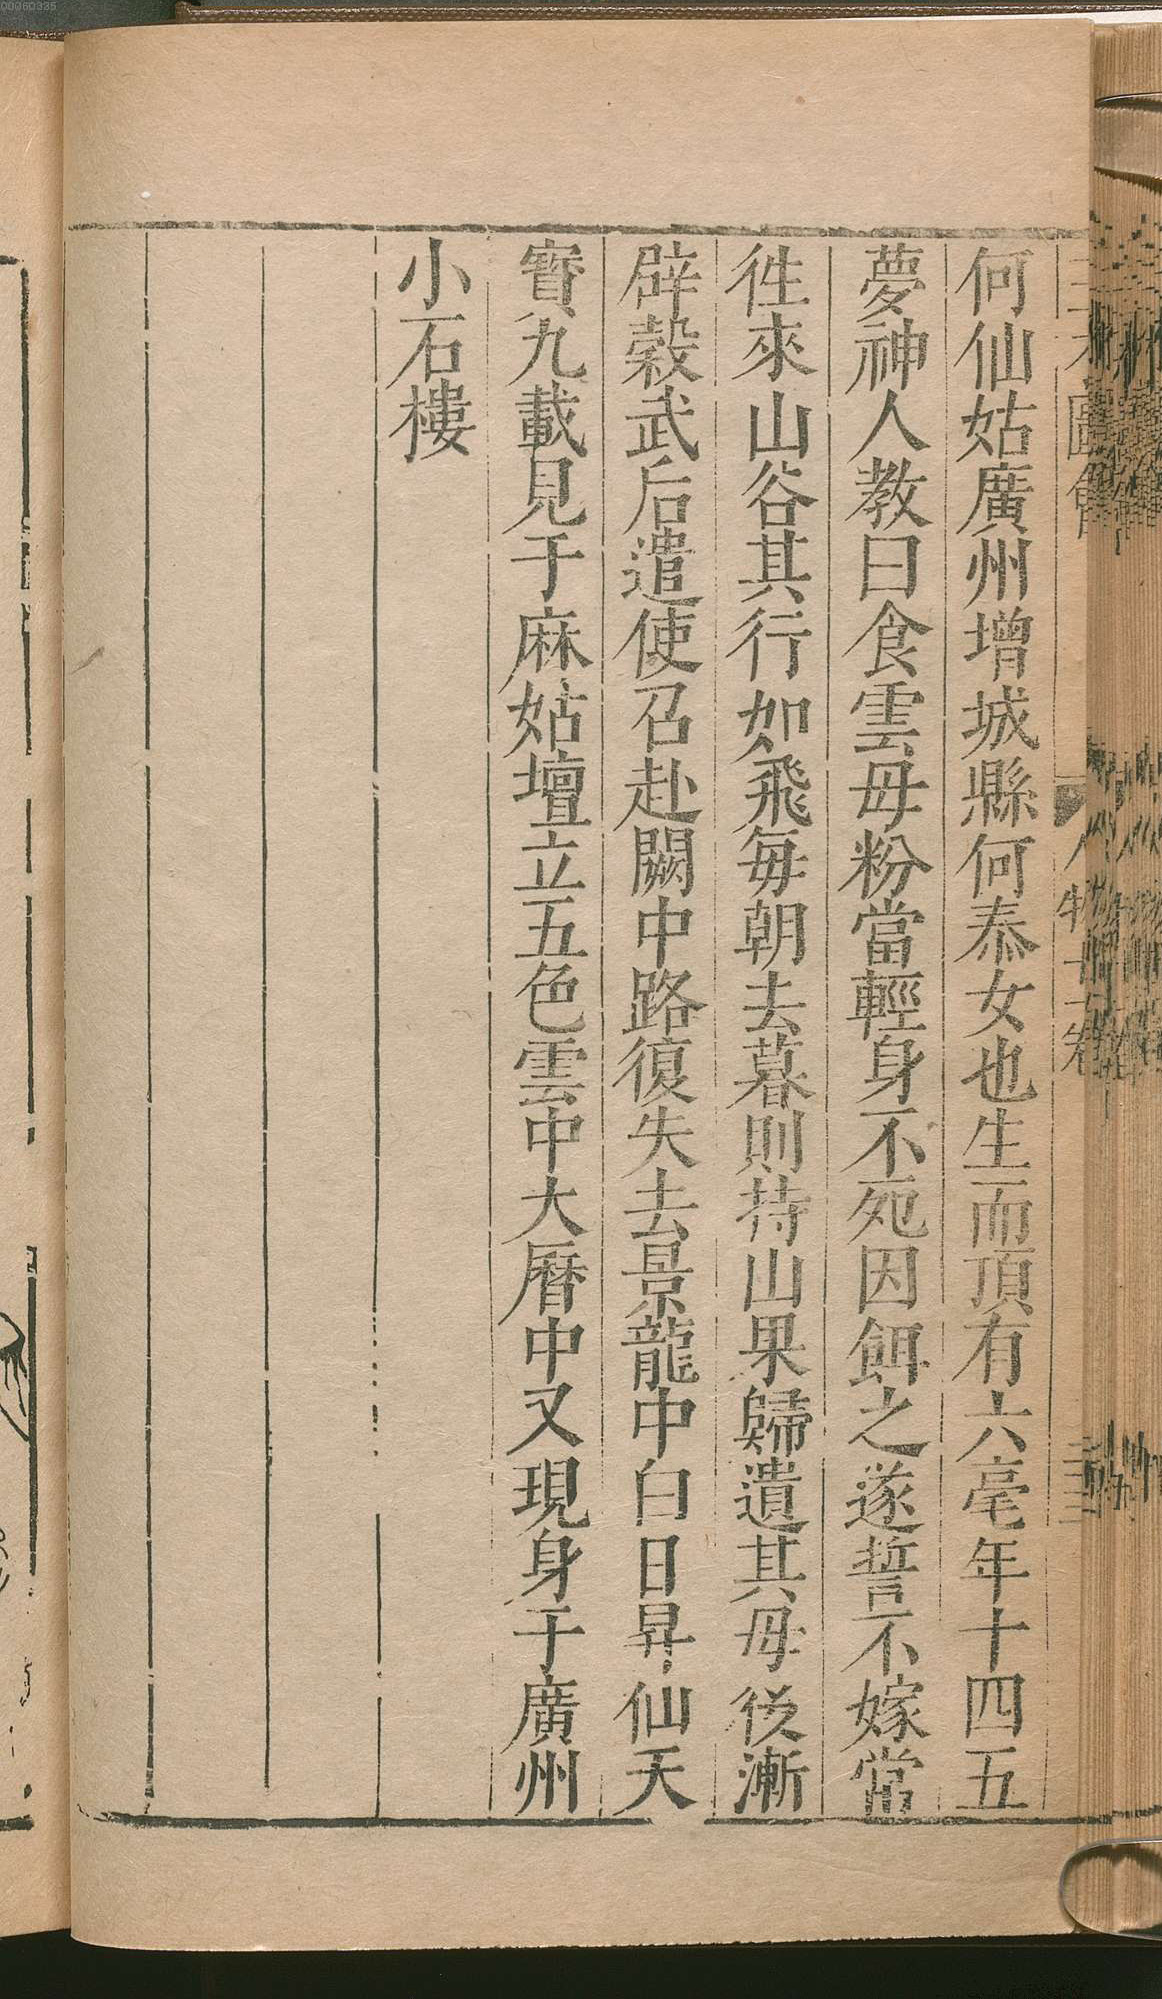 00060335
何仙姑廣州增城縣何泰女也生而頂有六毫年十四五
夢神人教曰食雲母粉當輕身不死因餌之遂誓不嫁常
徃來山谷其行如飛每朝去暮則持山果歸遺其母後漸
辟穀武后遣使召赴闕中路復失去景龍中白日昇仙天
寶九載見于麻姑壇立五色雲中大曆中又現身于廣州
小石樓